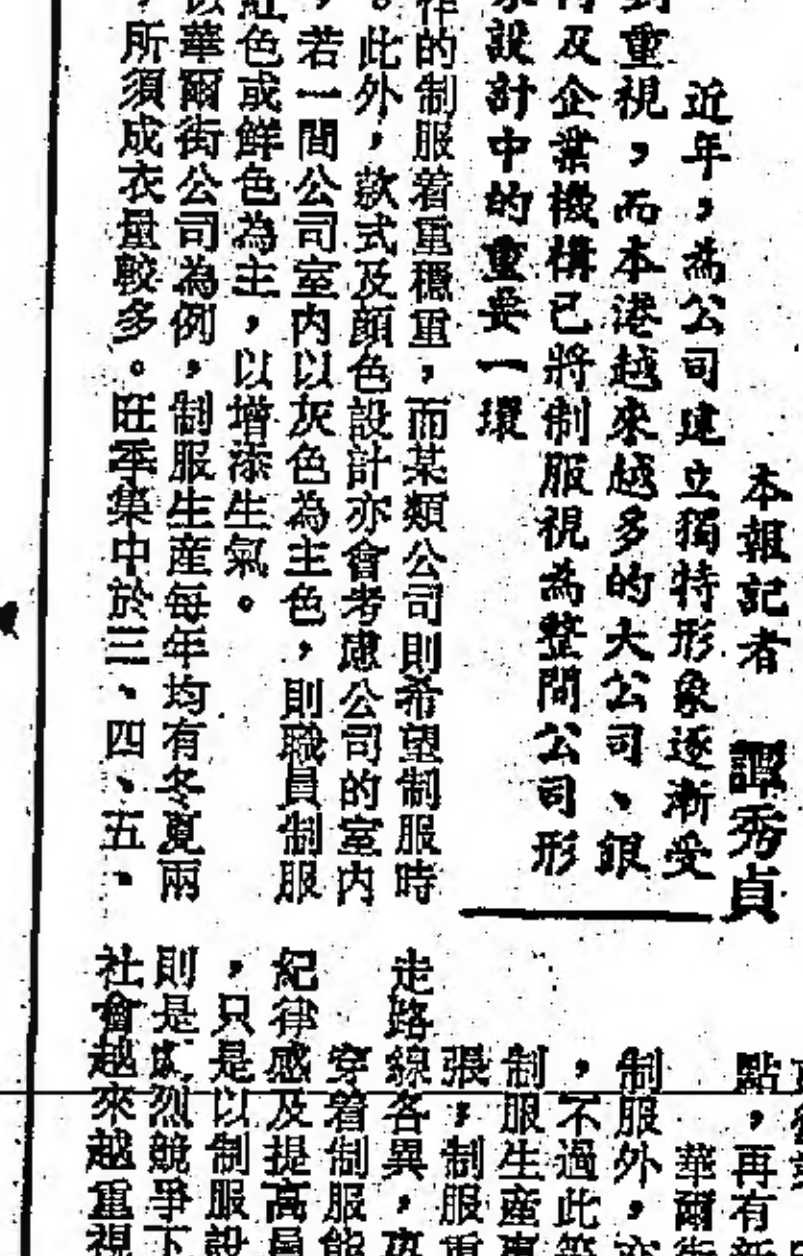 本報記者 譚秀貞
近年，為公司建立獨特形象逐漸受
到重視，而本港越來越多的大公司、銀
行及企業機構已將制服視為整間公司形
象設計中的重要一環
作的制服着重穩重，而某類公司則希望制服時
。此外，款式及顏色設計亦會考慮公司的室內
，若一間公司室內以灰色為主色，則職員制服
紅色或鮮色為主，以增添生氣。
以華爾街公司為例，制服生產每年均有冬夏兩
，所須成衣量較多。旺季集中於三、四、五、
點，再有新
華爾街
制服外，
，不過此
制服生產
張，制服
走路線各異，
穿着制服能
紀律感及提高員
，只是以制服設
則是烈競爭下
社會越來越重視